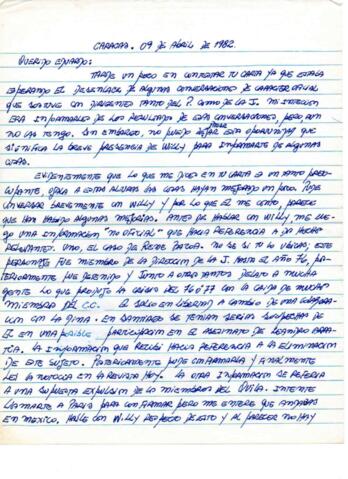 CARACAS, 09 DE ABRIL DE 1982.
QUERIDO EDUARDO:
TARDE UN POCO EN CONTESTAR TU CARTA YA QUE ESTABA
ESPERANDO EL DESENLACE DE ALGUNAS CONVERSACIONES DE CARACTER OFICIAL
QUE SOSTUVE CON DIRIGENTES TANTO DEL P. COMO DE LA J. MI INTENCION
ERA INFORMARLE DE LOS RESULTADOS DE ESAS CONVERSACIONES, PERO AUN
NO LAS TENGO. SIN EMBARGO, NO PUEDO DEJAR PASAR ESTA OPORTUNIDAD QUE
SIGNIFICA LA BREVE PRESENCIA DE WILLY PARA INFORMARTE DE ALGUNAS
COSAS.
EVIDENTEMENTE QUE LO QUE ME DICES EN TU CARTA ES UN TANTO PREO-
CUPANTE, OJALA A ESTAS ALTURAS LAS COSAS HAYAN MEJORADO UN POCO. PUDE
CONVERSAR BREVEMENTE CON WILLY Y POR LO QUE EL ME CONTO, PARECE
QUE HAN HABIDO ALGUNAS MEJORIAS. ANTES DE HABLAR CON WILLY, ME LLE-
GO UNA INFORMACION "NO OFICIAL" QUE HACIA REFERENCIA A DOS HECHOS
RELEVANTES. UNO, EL CASO DE RENE BASOA. NO SE SI TU LO UBICAS; ESTE
PERSONAJE FUE MIEMBRO DE LA DIRECCION DE LA J. HASTA EL AÑO 76, POS-
TERIORMENTE FUE DETENIDO Y JUNTO A OTROS TANTOS DELATO A MUCHA
GENTE LO QUE PRODUJO LA CRISIS DEL 76 O 77 CON LA CAIDA DE MUCHOS
MIEMBROS DEL C.C. EL SALIO EN LIBERTAD A CAMBIO DE UNA COLABORA-
CION CON LA DINA. EN SANTIAGO SE TENIAN SERIAS SOSPECHAS DE
EL EN UNA POSIBLE PARTICIPACION EN EL ASESINATO DE LEANDRO ARRA-
TIA. LA INFORMACION QUE RECIBI HACIA REFERENCIA A LA ELIMINACION
DE ESTE SUJETO. POSTERIORMENTE PUDE CONFIRMARLA Y FINALMENTE
LEI LA NOTICIA EN LA REVISTA HOY. LA OTRA INFORMACION SE REFERIA
A UNA SUPUESTA EXPULSION DE MIEMBROS DEL QUILA. INTENTE
LLAMARTE A PARIS PARA CONFIRMAR PERO ME ENTERE QUE ANDABAS
EN MEXICO. HABLE CON WILLY RESPECTO DE ESTO Y AL PARECER NO HAY